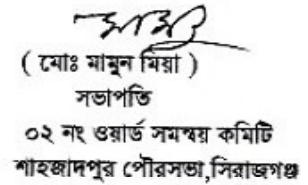 ( মোঃ মামুন মিয়া )
সভাপতি
০২ নং ওয়ার্ড সমন্বয় কমিটি
শাহজাদপুর পৌরসভা,সিরাজগঞ্জ